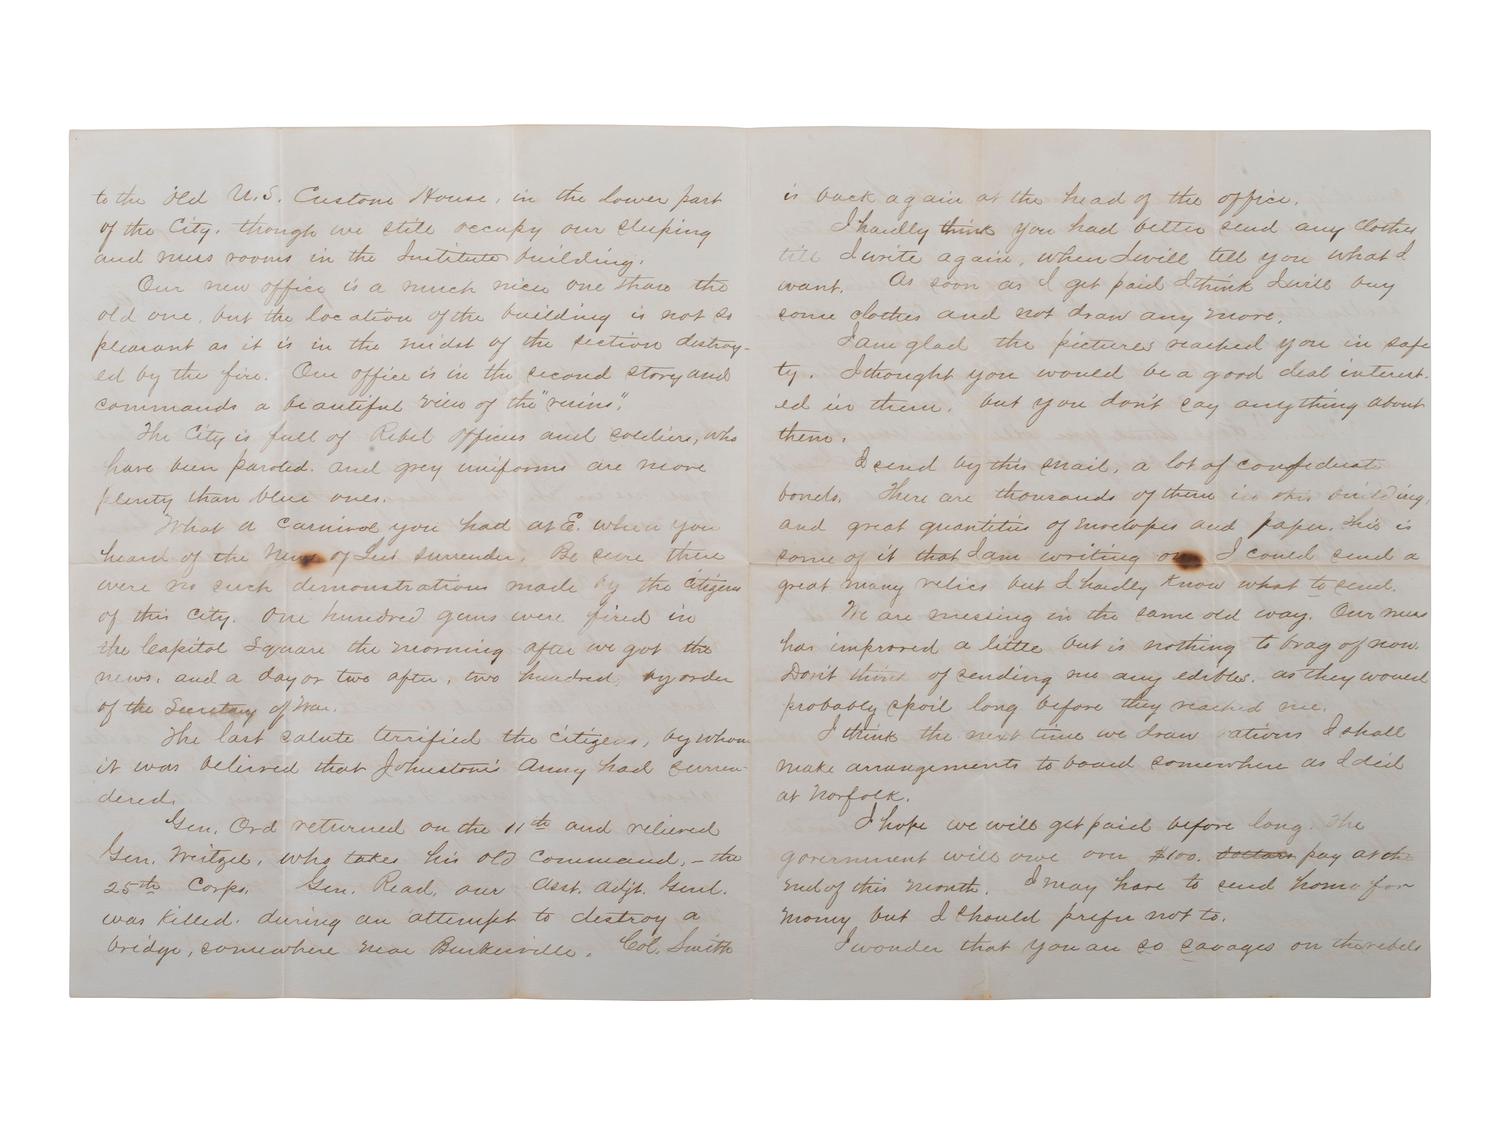 to the Old U.S. Custom House, in the lower part
of the City, though we still occupy our sleeping
and mess rooms in the Institute building.
Our new office is a much nicer one than the
old one, but the location of the building is not so
pleasant as it is in the midst of the section destroy-
ed by the fire. Our office is in the second story and
commands a beautiful view of the "ruins".
The City is full of Rebel officers and soldiers, who
have been paroled, and grey uniforms are more
plenty than blue ones.
What a carnival you had at E. when you
heard of the news of Lee's surrender. Be sure there
were no such demonstrations made by the Citizens
of this City. One hundred guns were fired in
the Capitol Square the morning after we got the
news, and a day or two after, two hundred, by order
of the Secretary of War.
The last salute terrified the Citizens, by whom
it was believed that Johnston's Army had surren-
dered.
Gen. Ord returned on the 11th and relieved
Gen. Weitzel, who takes his old command, – the
25th Corps. Gen. Read, our Asst. Adjt. Genl.
was killed, during an attempt to destroy a
bridge, somewhere near Burkesville. Col. Smith
is back again at the head of the office.
I hardly think you had better send any clothes
till I write again, when I will tell you what I
want. As soon as I get paid I think I will buy
some clothes and not draw any more.
I am glad the pictures reached you in safe
ty. I thought you would be a good deal interest-
ed in them, but you don't say anything about
them.
I send by this mail, a lot of confederate
bonds. There are thousands of them in this building,
and great quantities of envelopes and paper. This is
some of it that I am writing on. I could send a
great many relics but I hardly know what to send.
We are messing in the same old way. Our mess
has improved a little but is nothing to brag of now.
Don't think of sending me any edibles, as they would
probably spoil long before they reached me.
I think the next time we draw rations I shall
make arrangements to board somewhere as I did
at Norfolk.
I hope we will get paid before long. The
government will owe over $100. dollars pay at the
end of this month. I may have to send home for
money but I should prefer not to.
I wonder that you are so savages on the rebels